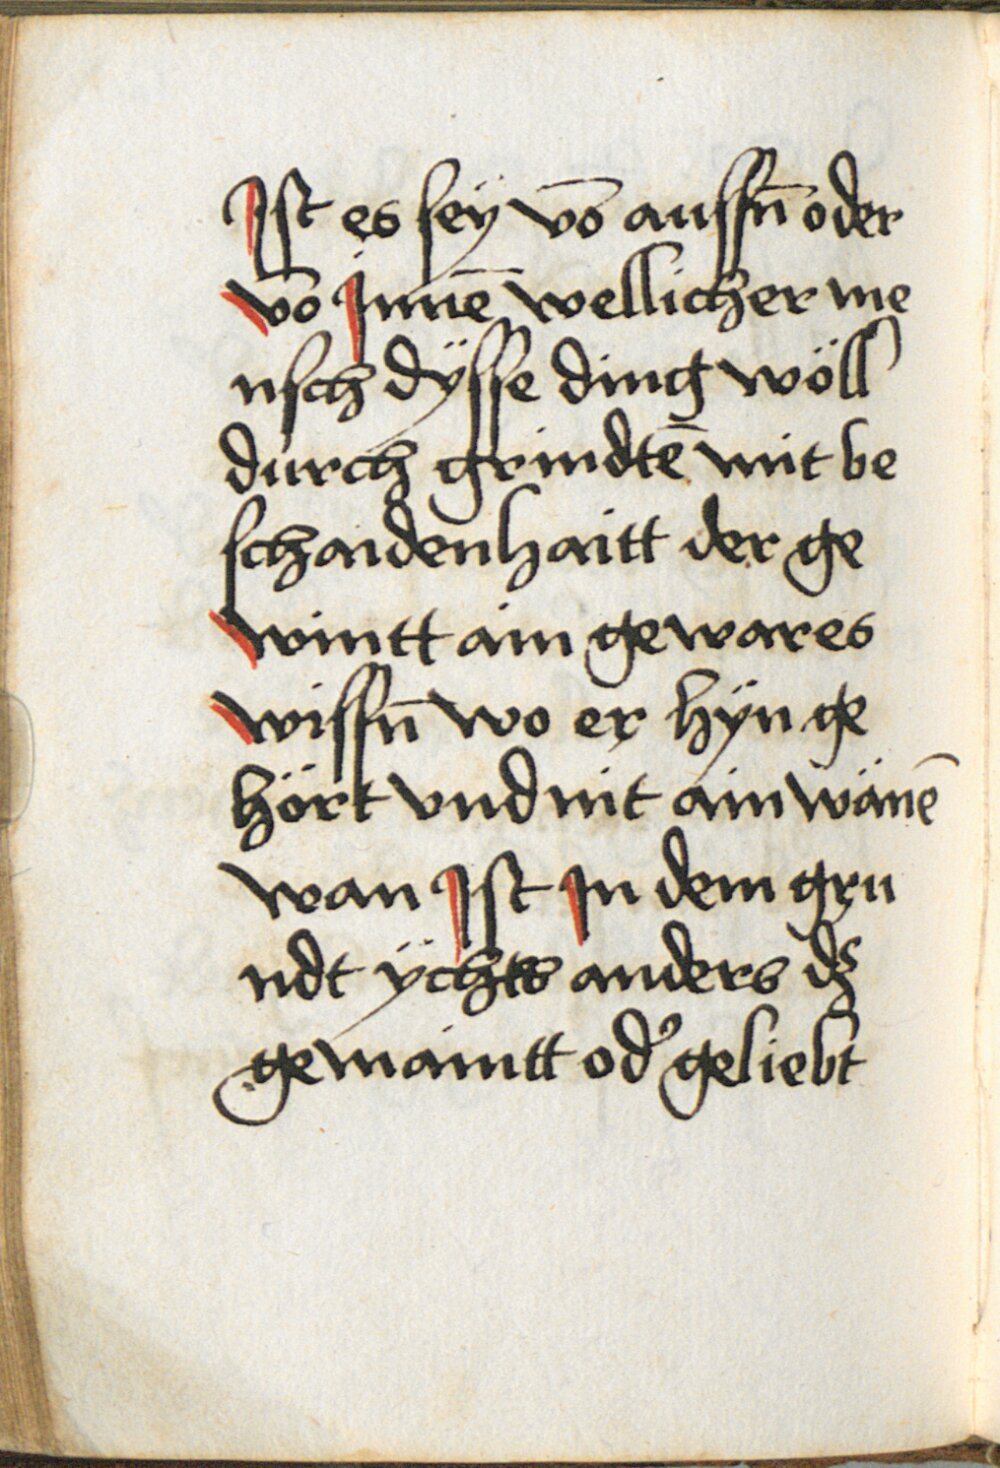 Ist es seÿ vō aussn̄ oder
vō Innē wellicher me
nsch dÿsse ding wöll
durch grindtē mit be
schaidenhaitt der ge
wintt ain gewares
wissn̄ wo er hÿn ge
hört vnd nit ain wänē
wan Ist In dem gru
ndt ÿchts anders dʒ
gemaintt od᾽ geliebt